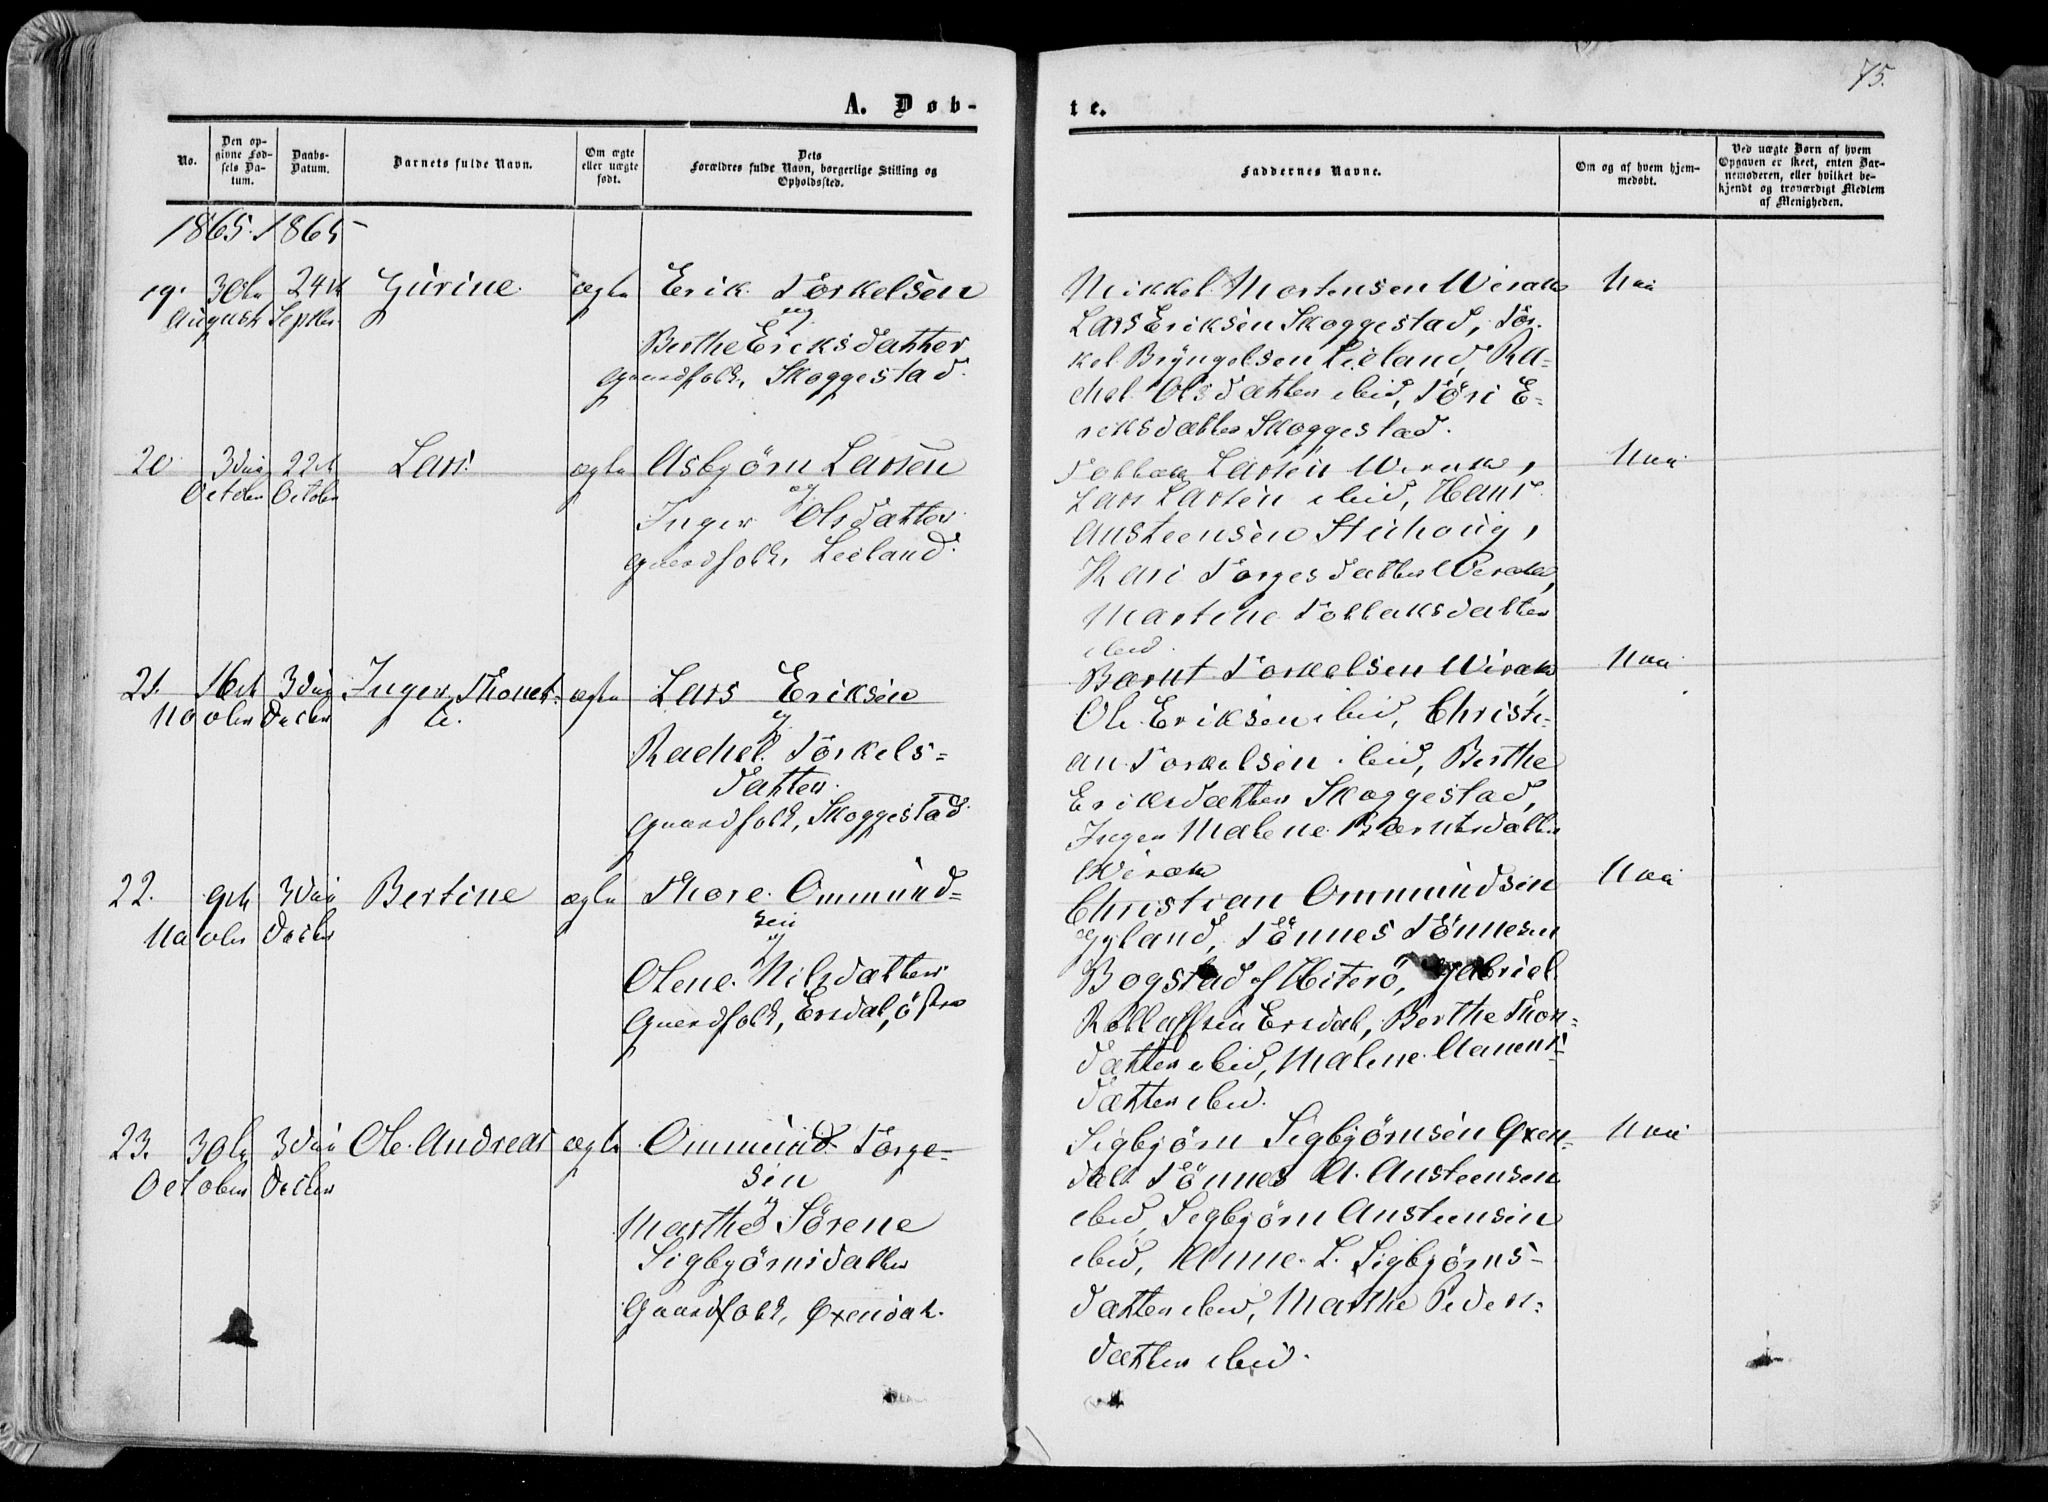 75.
A. Døb-
te.
No.
Den op-
givne Fød-
sels Da-
tum.
Daabs-
Datum.
Barnets fulde Navn.
Om ægte
eller uægte
født.
Dets
Forældres fulde Navn, borgerlige Stilling og
Opholdssted.
Faddernes Navne.
Om og af hvem hjem-
medøbt.
Ved uægte Børn af hvem
Opgaven er skeet, enten Bar-
nemoderen, eller hvilket be-
kjendt og troværdigt Medlem
af Menigheden.
1865. 1865
19. 30te 24de Gurine. ægte Erik Torkelsen
August Septbr. og
Berthe Eriksdatter
Gaardfolk, Skoggestad.
Mikkel Mortensen Wirak
Lars Eriksen Skoggestad, Tor-
kel Bryngelsen Lieland, Ra-
chel Olsdatter ibid, Töri E-
riksdatter Skoggestad.
20 3die 22de Lars. ægte Asbjörn Larsen
October October og
Inger Olsdatter
Gaardfolk, Leeland.
Tollak Larsen Wirak,
Lars Larsen ibid, Hans
Austeensen
Kari Torgesdatter Wirak,
Martine Tollaksdatter
ibid.
21. 16de 3die Inger Thonet- ægte Lars Eriksen
Novbr Decbr te. og
Rachel Torkels-
datter.
Gaardfolk, Skoggestad.
Bernt Torkelsen Wirak
Ole Eriksen ibid, Christi-
an Torkelsen ibid, Berthe
Eriksdatter Skoggestad,
Inger Malene Berntsdatter
Wirak
22. 9de 3die Bertine ægte Thore Ommund-
Novbr Decbr sen
og
Olene Nilsdatter
Gaardfolk, Ersdal, östre
Christian Ommundsen
Gyland, Tönnes Tönnesen
Bogstad af Hiterö, Gabriel
Rollaffsen Ersdal, Berthe Thors-
datter ibid, Malene
datter ibid.
23. 30te 3die Ole Andreas ægte Ommund Torge-
October Decbr sen
og
Marthe Sörene
Sigbjörnsdatter
Gaardfolk, Oxendal.
Sigbjörn Sigbjörnsen Oxen-
dal Tönnes A. Austeensen
ibid, Sigbjörn Austeensen
ibid, Anne L. Sigbjörns-
datter ibid, Marthe Peders-
datter ibid.